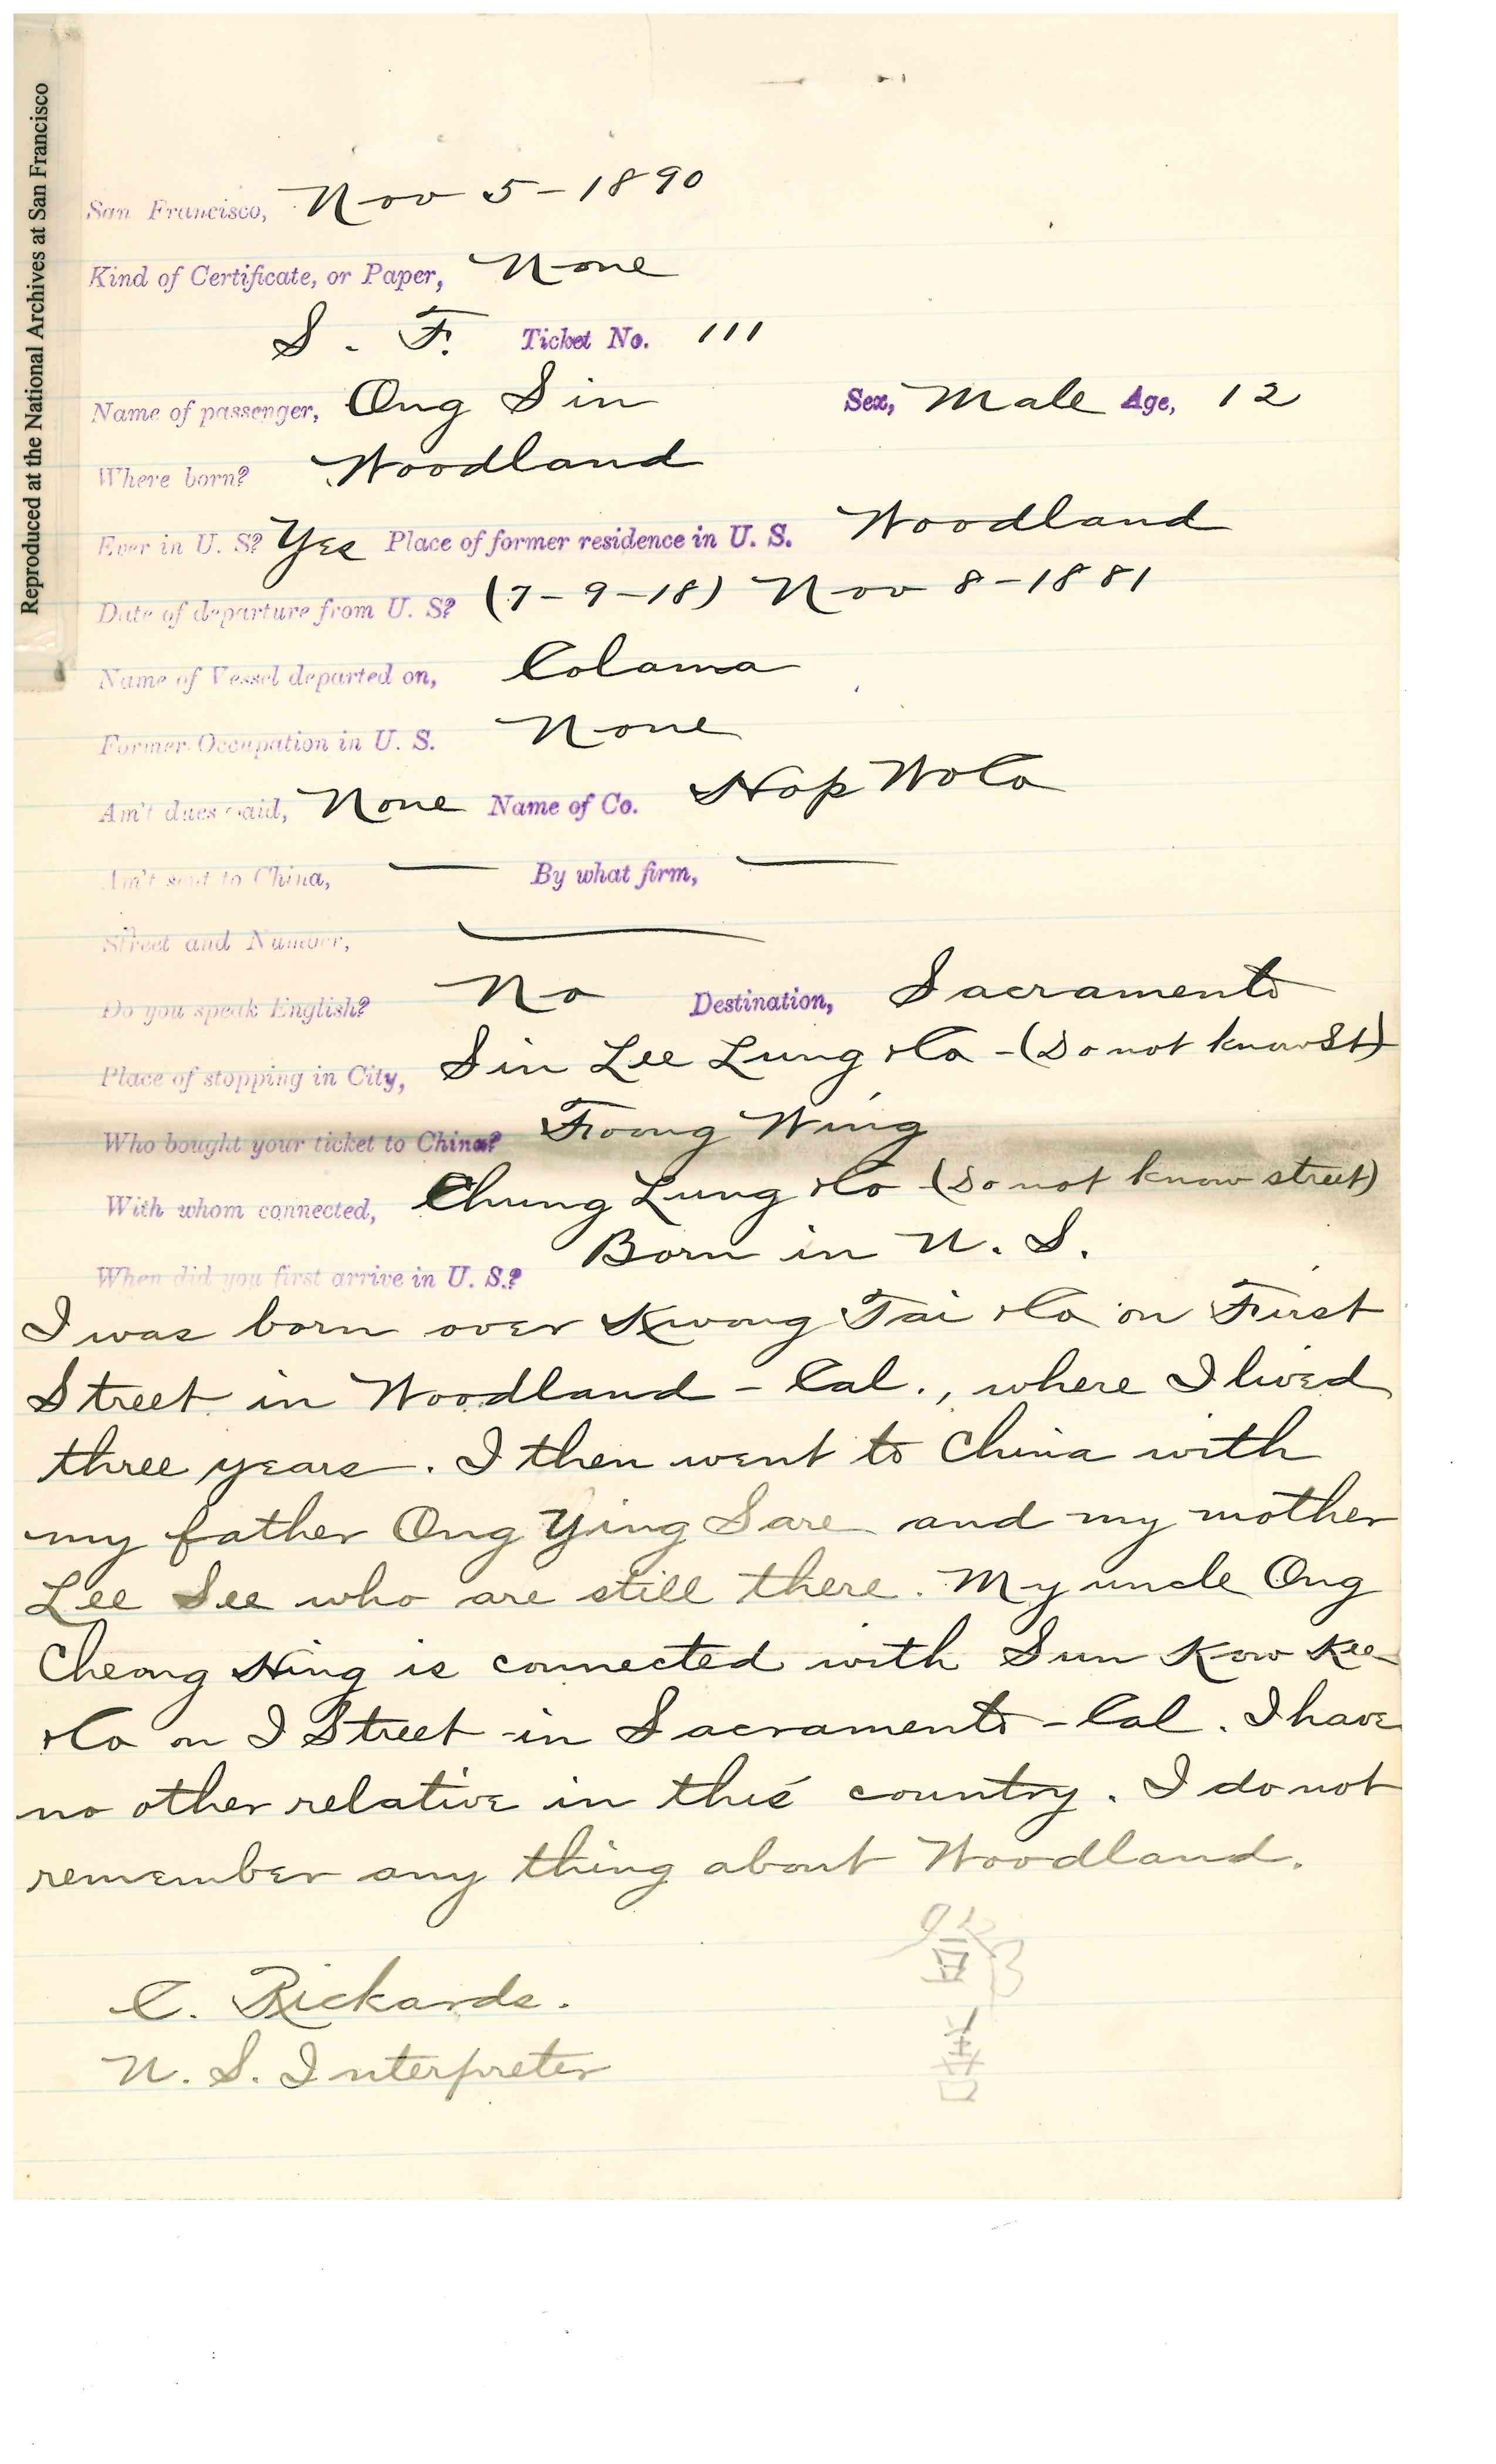 Reproduced at the National Archives at San Francisco
San Francisco, Nov 5-1890
Kind of Certificate, or Paper, None
S. F. Ticket No. 111
Name of passenger, Ong Sin Sex, Male Age, 12
Where born? Woodland
Ever in U. S? Yes Place of former residence in U. S. Woodland
Date of departure from U. S? (7-9-18) Nov 8-1881
Name of Vessel departed on, Colama
Former Occupation in U. S. None
Am't dues paid, None Name of Co. Hop Wo Co
Am't sent to China, — By what firm, —
Street and Number, —
Do you speak English? No Destination, Sacramento
Place of stopping in City, Sin Lee Lung & Co - (Do not know St)
Who bought your ticket to China? Foong Wing
With whom connected, Chung Lung & Co (Do not know street)
When did you first arrive in U. S.? Born in U. S.
I was born over Kwong Tai & Co on First
Street in Woodland - Cal., where I lived
three years. I then went to China with
my father Ong Ying Sare and my mother
Lee See who are still there. My uncle Ong
Cheong Hing is connected with Sun Kow Kee
& Co on I Street in Sacramento - Cal. I have
no other relative in this country. I do not
remember any thing about Woodland.
C. Rickards.
U. S. Interpreter